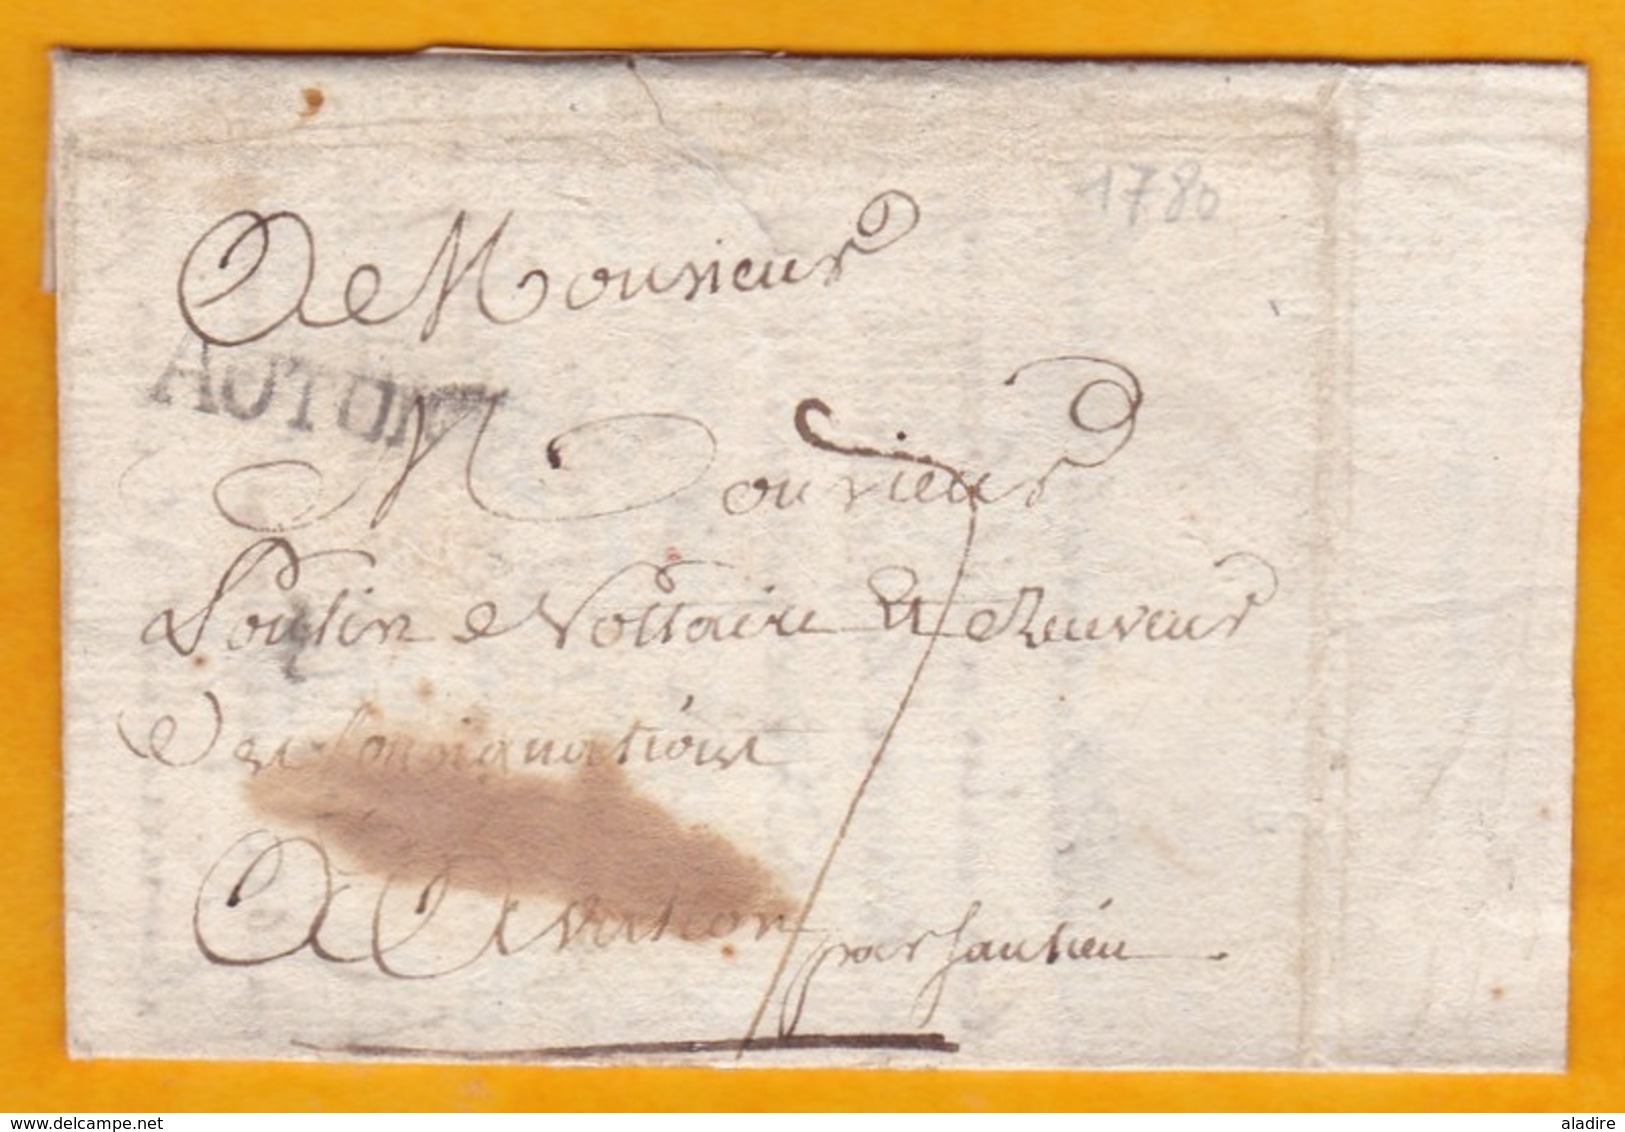 1780
A Monsieur
AUTUN
Monsieur
7
Poulin Nottaire Et Receveur
Des Consignations
A Avallon
par Saulieu
www.delcampe.net
aladire